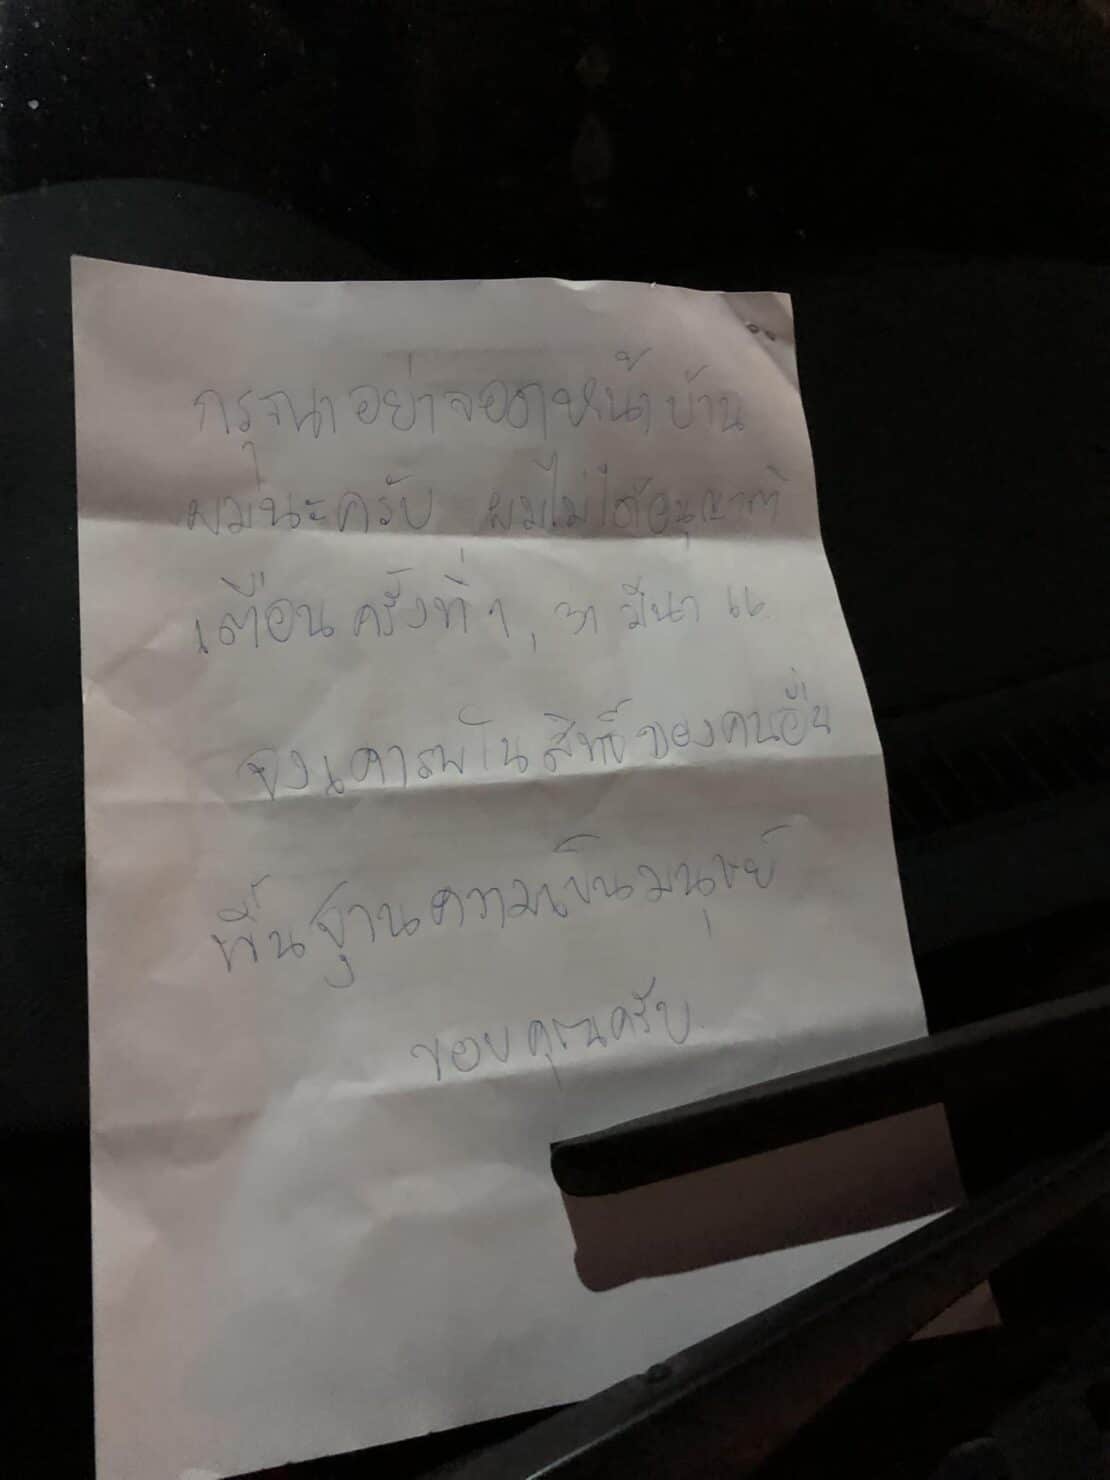 กรุณาอย่าจอดหน้าบ้าน
ผมนะครับ ผมไม่ได้อนุญาติ
เตือนครั้งที่ ๑, ๓๑ มีนา ๖๖.
จงเคารพในสิทธิ์ของคนอื่น
พื้นฐานความเป็นมนุษย์
ขอบคุณครับ.